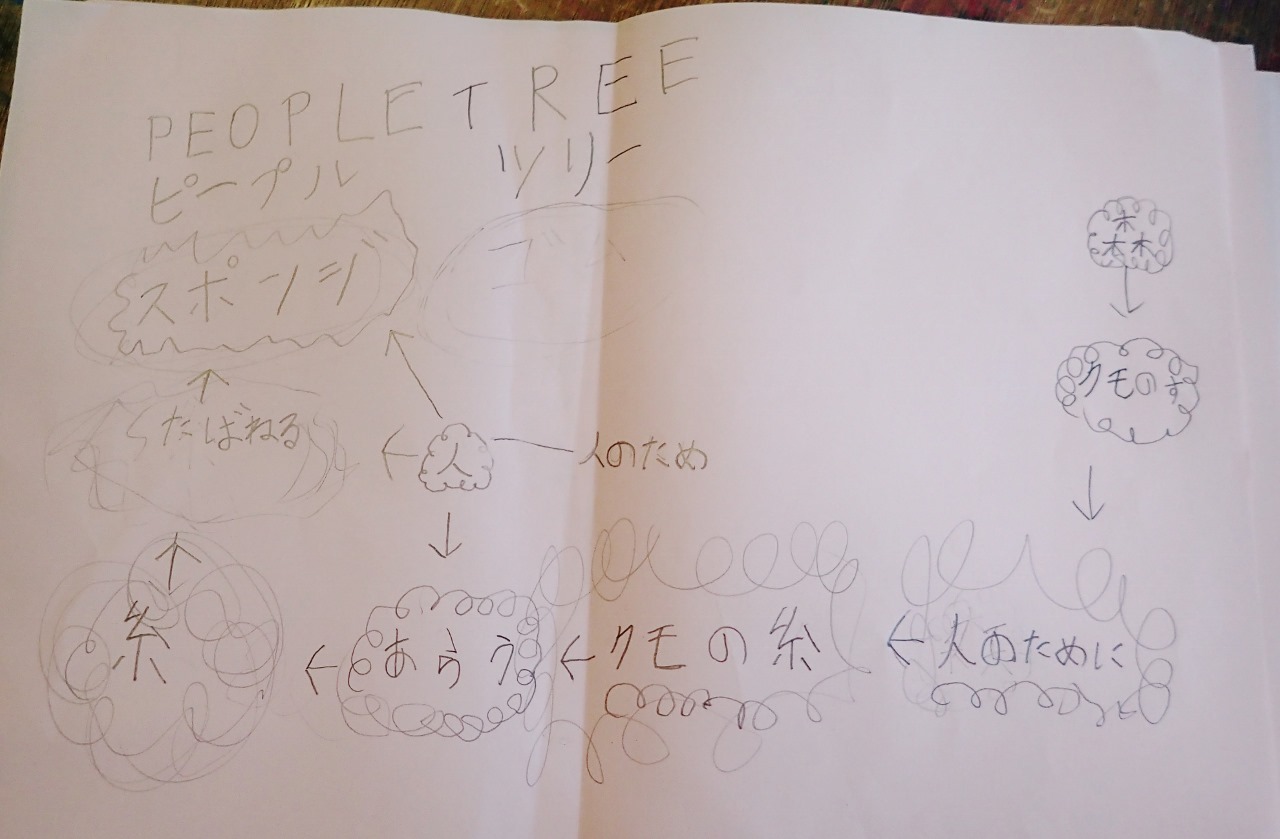 PEOPLE TREE
ピープル ツリー
スポンジ
森
クモのす
たばねる
人
人のため
糸
あらう
クモの糸
人のために